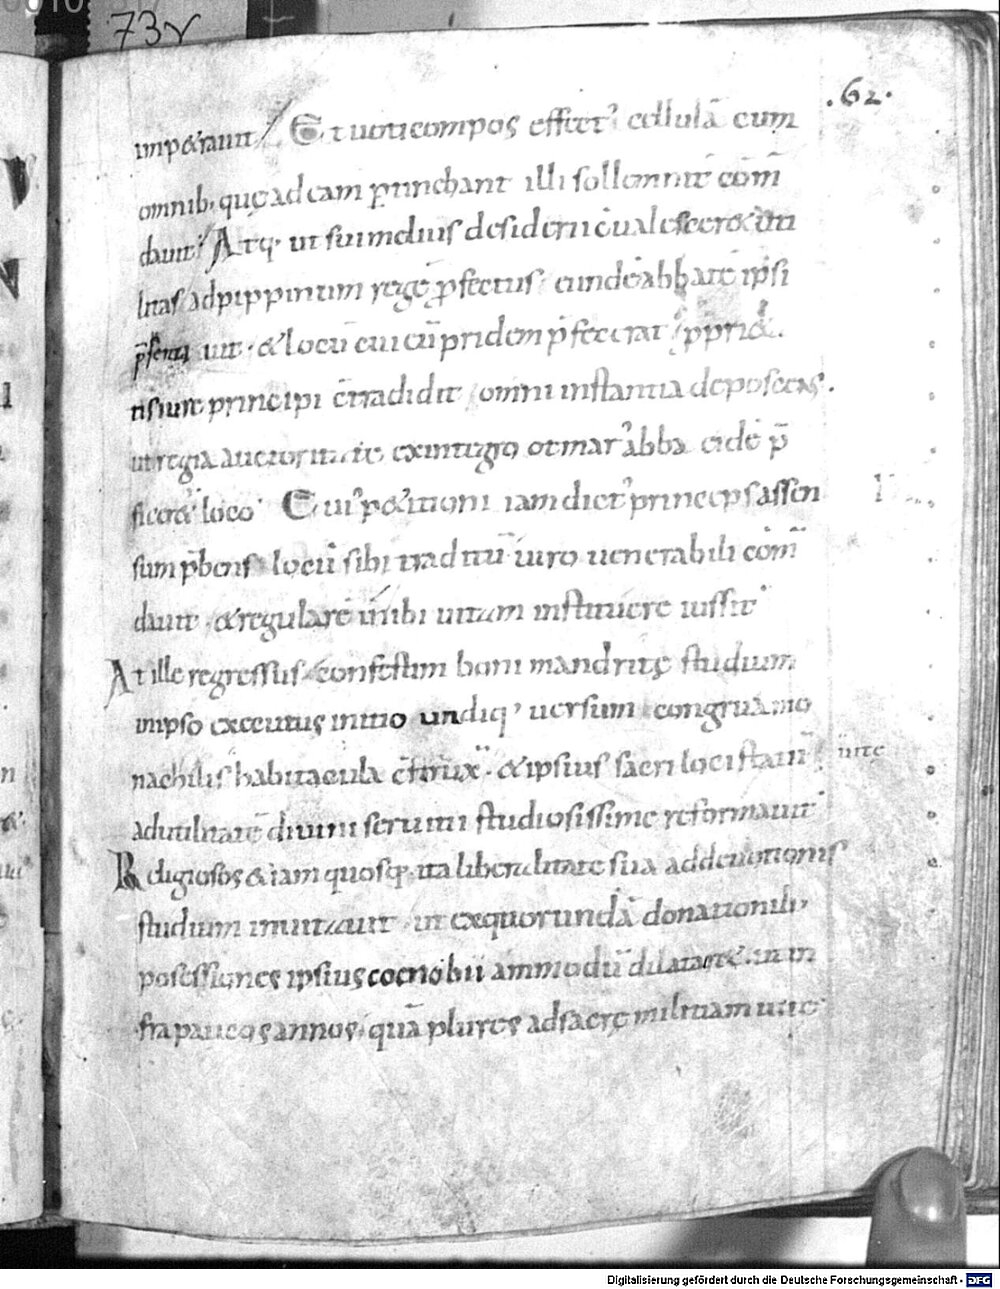 73v
.62.
imp&rauit / Et uoti compos effect' cellulā cum
omnib; quę ad eam ptinebant illi sollemnit cōm
dauit. Atq; ut sui melius desiderii
litas ad pippinum regē pfectus eundē abbatē ipsi
psentauit. & locū cui eū pridem pfecerat ppri&a
tis iure principi cōtradidit omni instantia deposcens.
ut regia auctoritate ex integro otmar' abba eidē p
ficer& loco. Cui' p&itioni iam dict' princeps assen
sum pbens locū sibi traditū iuro uenerabili cōm
dauit. & regularē inibi uitam instituere iussit
At ille regressus confestim boni mandritę studium
in ipso exec̄utus initio undiq; uersum congrua mo
nachilis habitacula c̄strux. & ipsius sacri loci statū
ad utilitatē diuini seruitii studiosissime reformauit
Religiosos & iam quosq; ita liberalitate sua ad deuotionis
studium inuitauit ut ex quorundā donationib;
posessiones ipsius coenobii ammodū dilatarēt. in
fra paucos annos quā plures ad sacrę militiam uitę